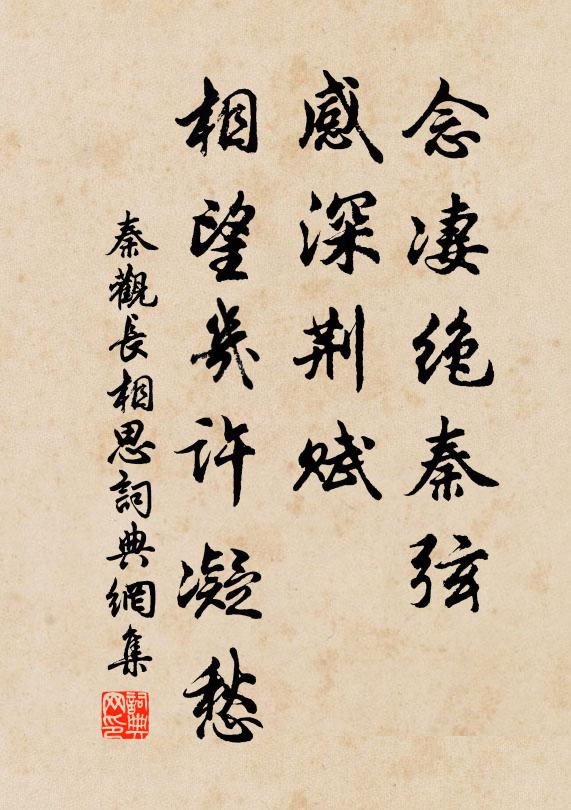 念凄绝秦弦
感深荆赋
相望幾许凝愁
秦觀長相思詞典網集
詞典
网印